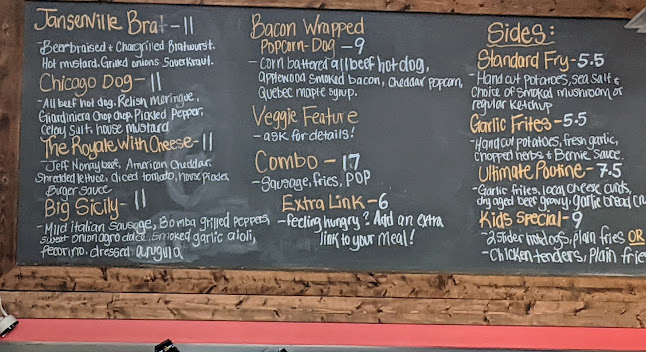 Jansenville Brat - 11
- Beer braised + Chargrilled Bratwurst.
Hot mustard. Grilled onions Sauerkraut.
Chicago Dog - 11
- All beef hot dog, Relish meringue,
Giardiniera Chop Chop, Pickled Pepper,
Celery Salt, house mustard
The Royale With Cheese - 11
Jeff Nonay beef, American Cheddar,
Shredded lettuce, diced tomato, house pickles,
Burger Sauce
Big Sicily - 11
- Mild italian Sausage, Bomba grilled peppers
sweet onion agro dolce, smoked garlic aioli,
pecorino, dressed arugula
Bacon Wrapped
Popcorn-Dog - 9
- Corn battered all beef hotdog,
applewood smoked bacon, cheddar popcorn,
Quebec maple syrup.
Veggie Feature
- ask for details!
Combo - 17
- Sausage, fries, POP
Extra Link - 6
- feeling hungry? Add an extra
link to your meal!
Sides:
Standard Fry - 5.5
- Hand cut potatoes, sea salt &
choice of smoked mushroom or
regular ketchup
Garlic Frites - 5.5
- Hand cut potatoes, fresh garlic,
chopped herbs + Bernie Sauce.
Ultimate Poutine - 7.5
- Garlic frites, local cheese curds,
dry aged beef gravy, garlic bread
Kids Special - 9
- 2 slider hotdogs, plain fries OR
- Chicken tenders, Plain frie